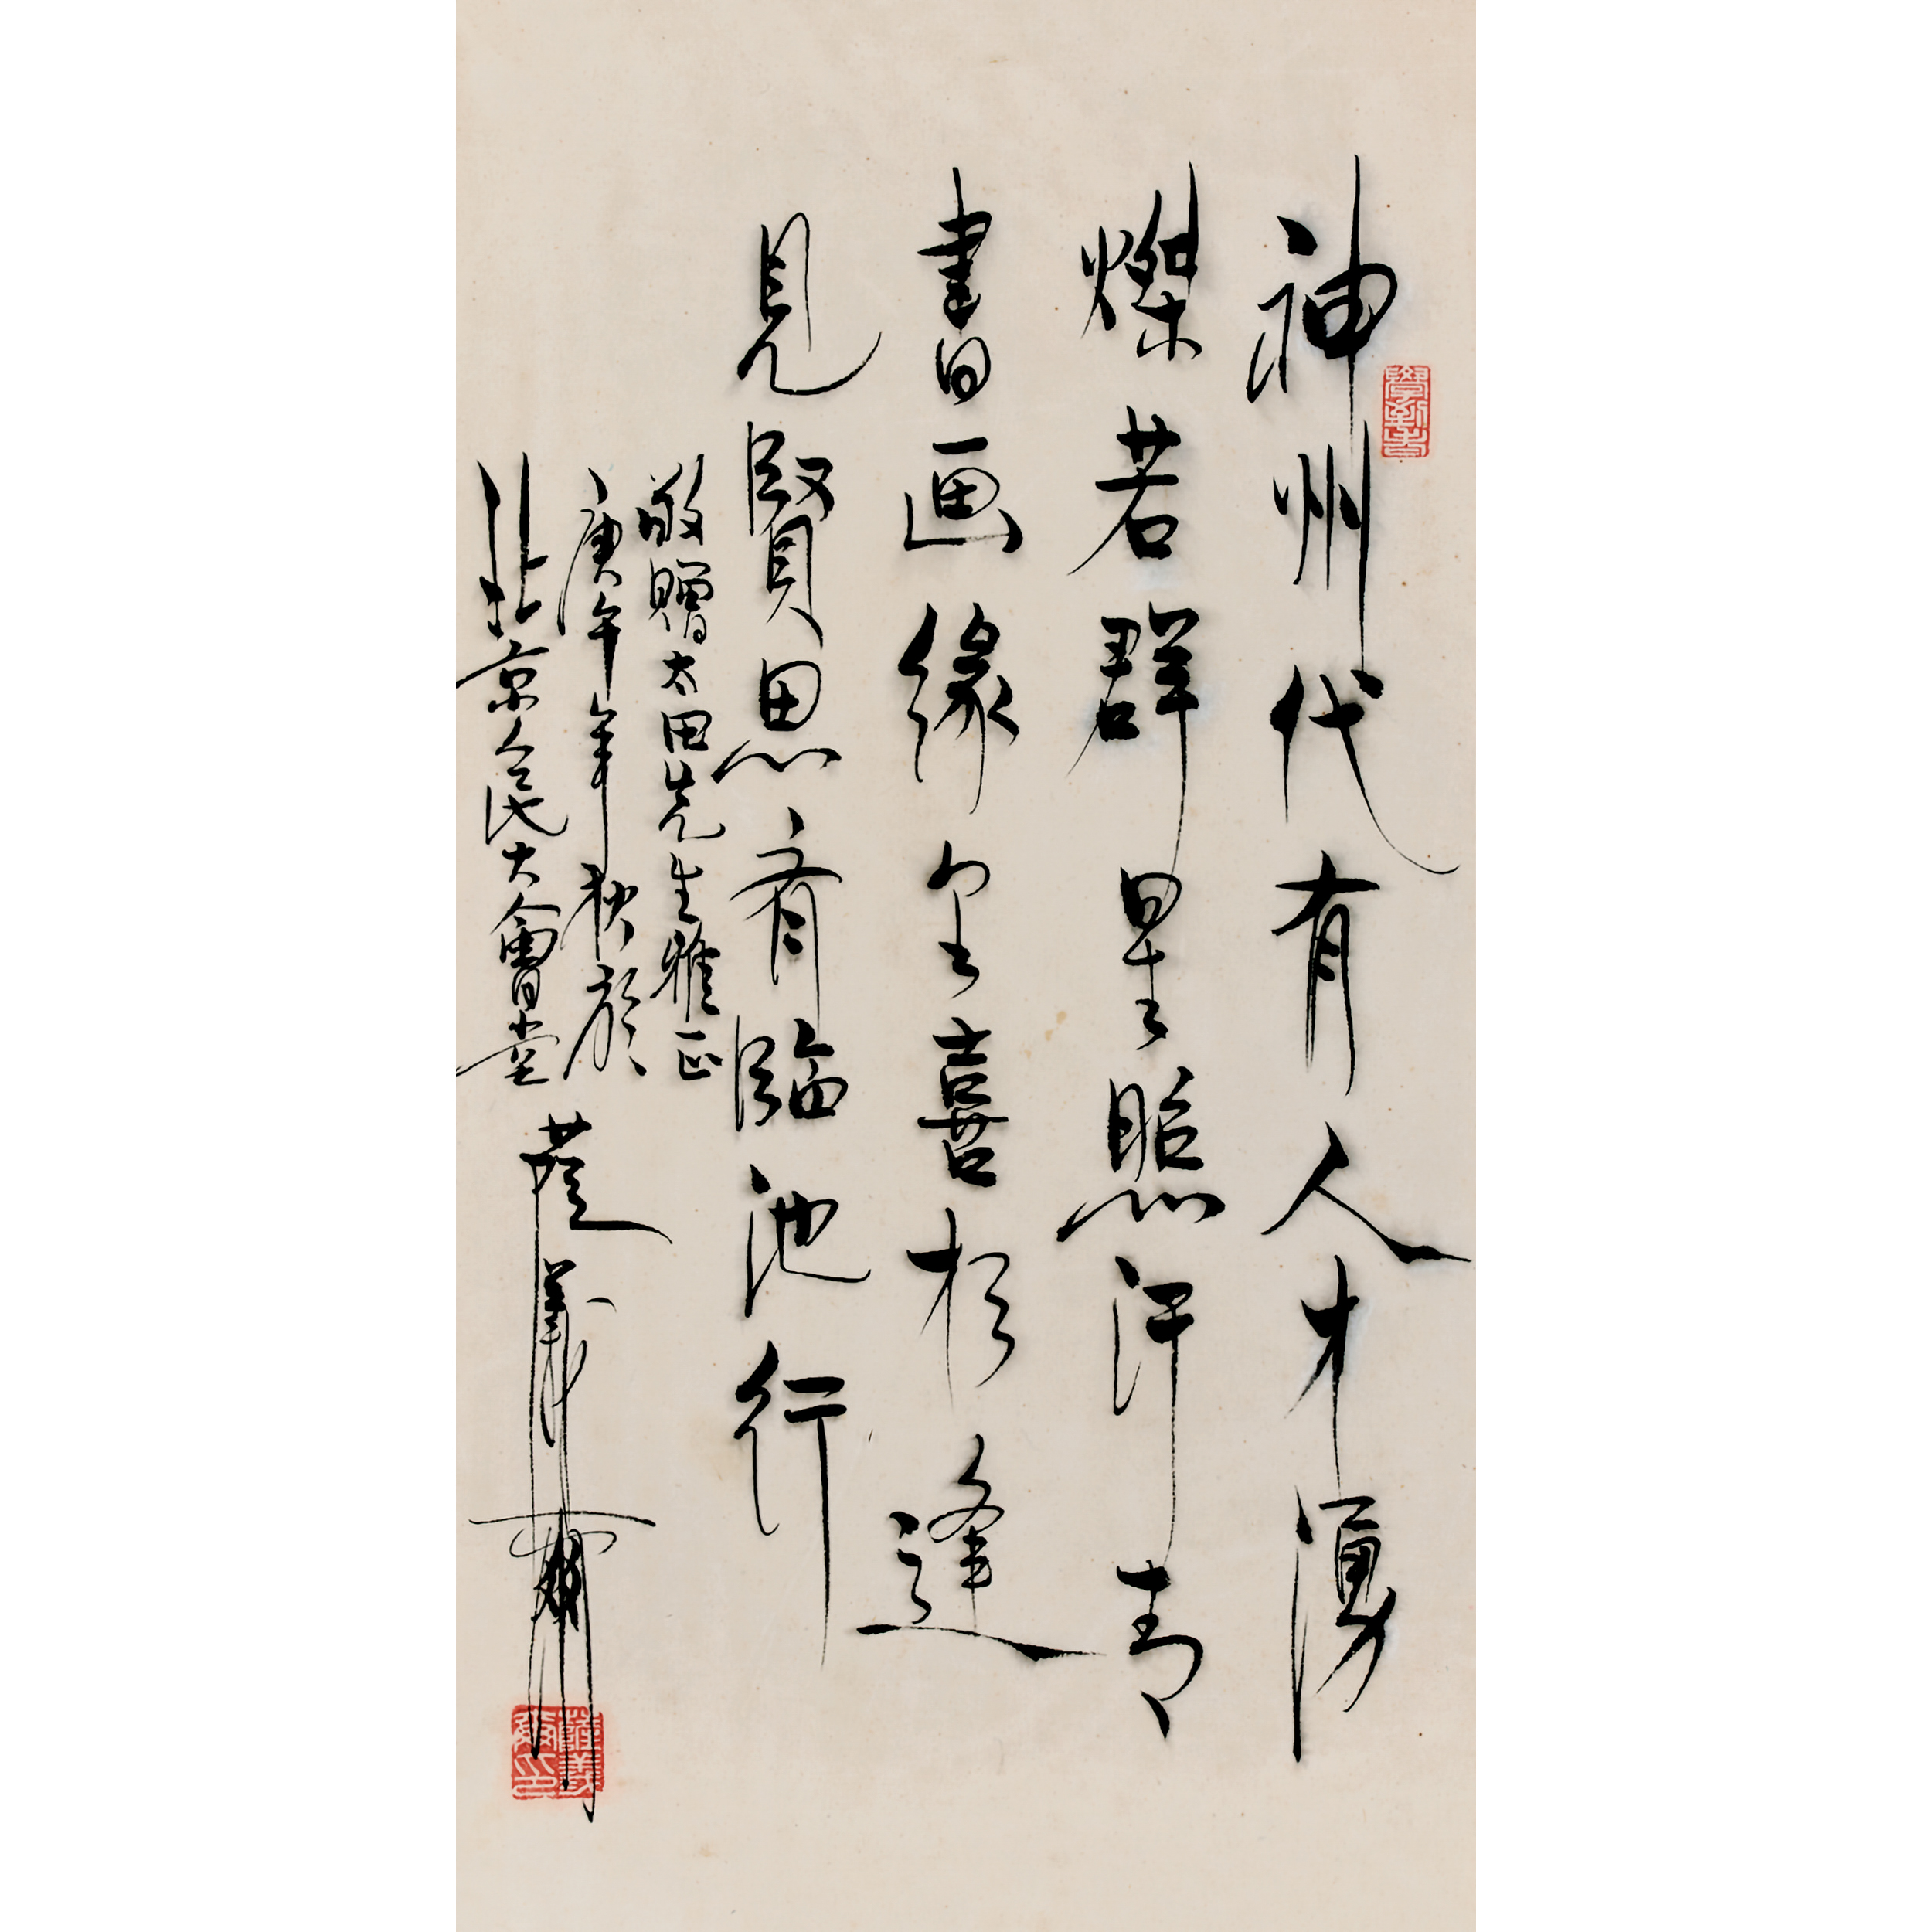 神州代有人才湧
燦若群星照汗青
書画緣里喜相逢
見賢思齊臨池行
敬贈太田先生雅正
庚午年秋於
北京人民大會堂
薩義
學到老